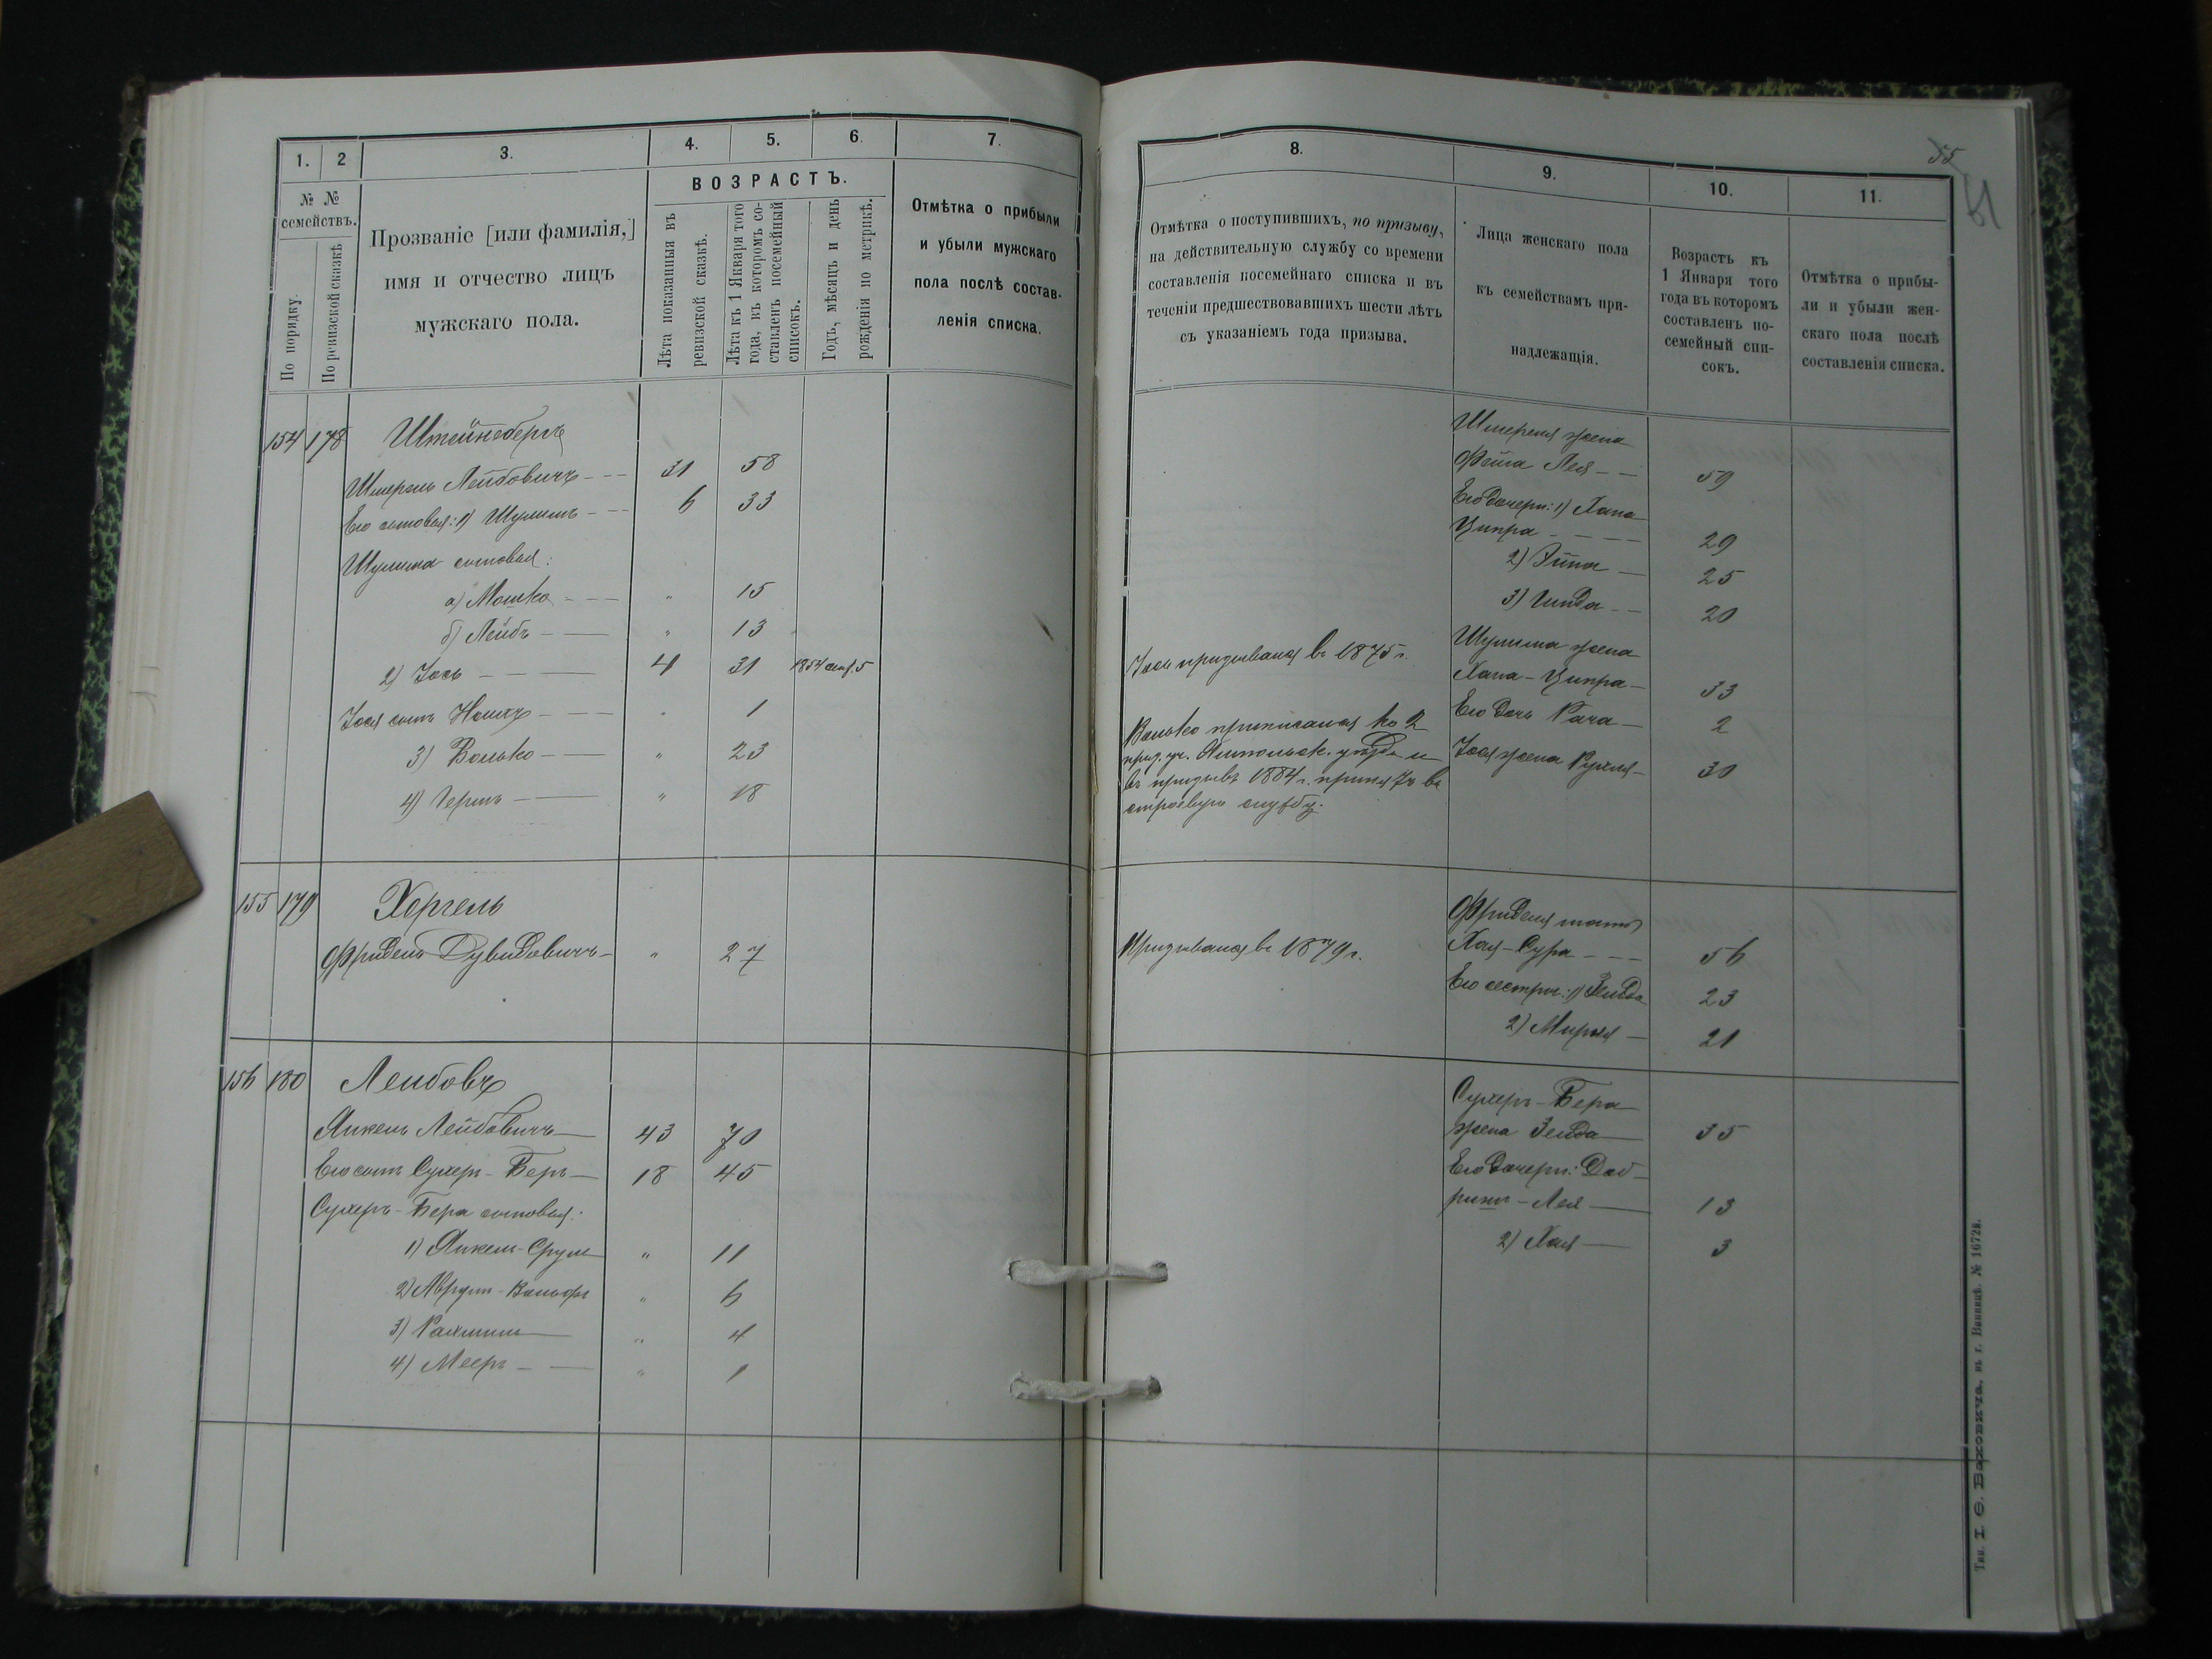 1. 2 3. 4. 5. 6. 7.
№ № семействъ.
По порядку.
По ревизской сказкѣ
Прозваніе [или фамилія,]
имя и отчество лицъ
мужскаго пола.
ВОЗРАСТЪ.
Лѣта показанныя въ
ревизской сказкѣ.
Лѣта къ 1 Января того
года, въ которомъ со-
ставленъ посемейный
списокъ.
Годъ, мѣсяцъ и день
рожденія по метрикѣ.
Отмѣтка о прибыли
и убыли мужскаго
пола послѣ состав-
ленія списка.
154 178 Штейнбергъ
Шмерель Лейбовичъ - - 31 58
Его сыновья: 1) Шулимъ - - 6 33
Шулима сыновья:
а) Мошко - - " 15
б) Лейбъ - — " 13
2) Іось - - — 4 31 1854 5
Іося сынъ - — " 1
3) Волько - — " 23
4) Гершъ - — " 18
155 179 Хоргель
Фридель Дувидовичъ - " 27
156 180 Лейбовъ
Янкель Лейбовичъ — 43 70
Его сынъ Сухеръ-Беръ — 18 45
Сухеръ-Бера сыновья:
1) Янкель-Сруль " 11
2) Аврумъ-Вольфъ " 6
3) — " 4
4) Мееръ - — " 1
55
61
8. 9. 10. 11.
Отмѣтка о поступившихъ, по призыву,
на дѣйствительную службу со времени
составленія посемейнаго списка и въ
теченіи предшествовавшихъ шести лѣтъ
съ указаніемъ года призыва.
Лица женскаго пола
къ семействамъ при-
надлежащія.
Возрастъ къ
1 Января того
года въ которомъ
составленъ по-
семейный спи-
сокъ.
Отмѣтка о прибы-
ли и убыли жен-
скаго пола послѣ
составленія списка.
Шмереля жена
Фейга Лея - - 59
Его дочери: 1) Хана
Ципра - - - - 29
2) Этта — 25
3) Гинда - - 20
Іось призывался въ 1875 г.
Шулима жена
Хана-Ципра - 33
Его дочь Рача — 2
Іося жена Рухля - 30
Волько приписался ко 2
приз. уч. Ямпольск. уѣзда и
въ призывъ 1884 г. принятъ въ
строевую службу.
Призывался въ 1879 г.
Фриделя мать
Хая-Сура - - - 56
Его сестры: 1) Зельда 23
2) Мирля — 21
Сухеръ-Бера
жена Зельда — 35
Его дочери: Доб-
ришъ-Лея — 13
2) Хая — 3
Тип. І. Ѳ. Баховича, въ г. Винницѣ. № 1672в.